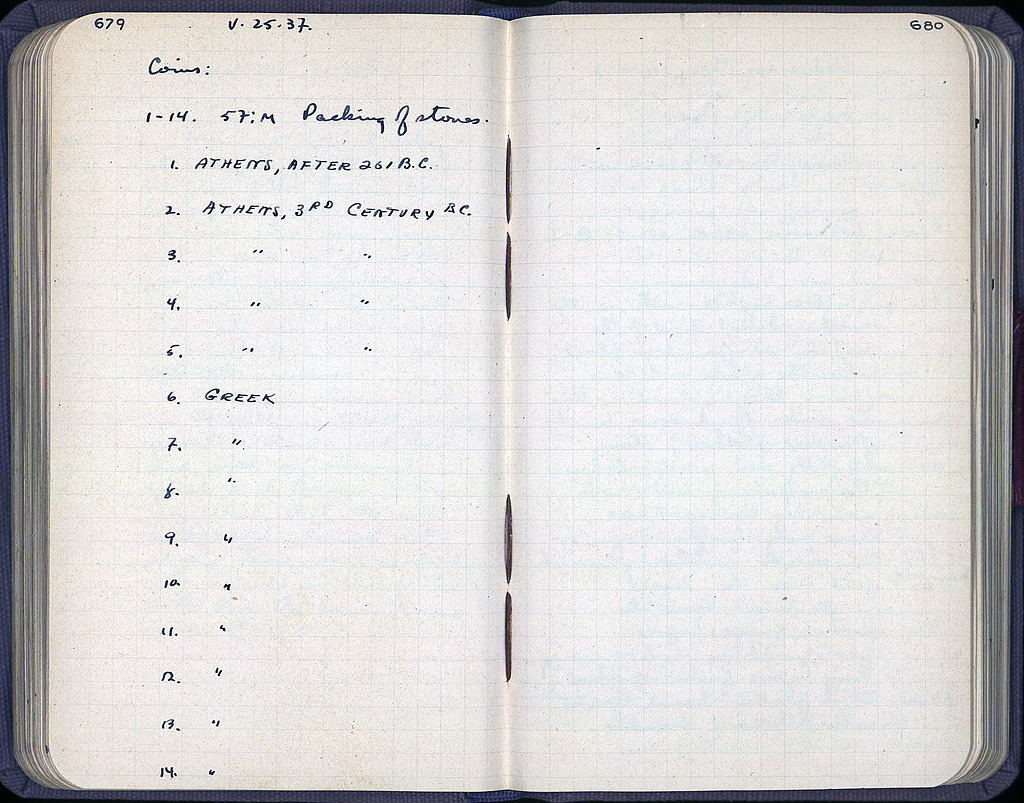 679
V·25·37.
680
Coins:
1-14. 57:M Packing of stones.
1. ATHENS, AFTER 261 B.C.
2. ATHENS, 3RD CENTURY B.C.
3. " "
4. " "
5. " "
6. GREEK
7. "
8. "
9. "
10. "
11. "
12. "
13. "
14. "